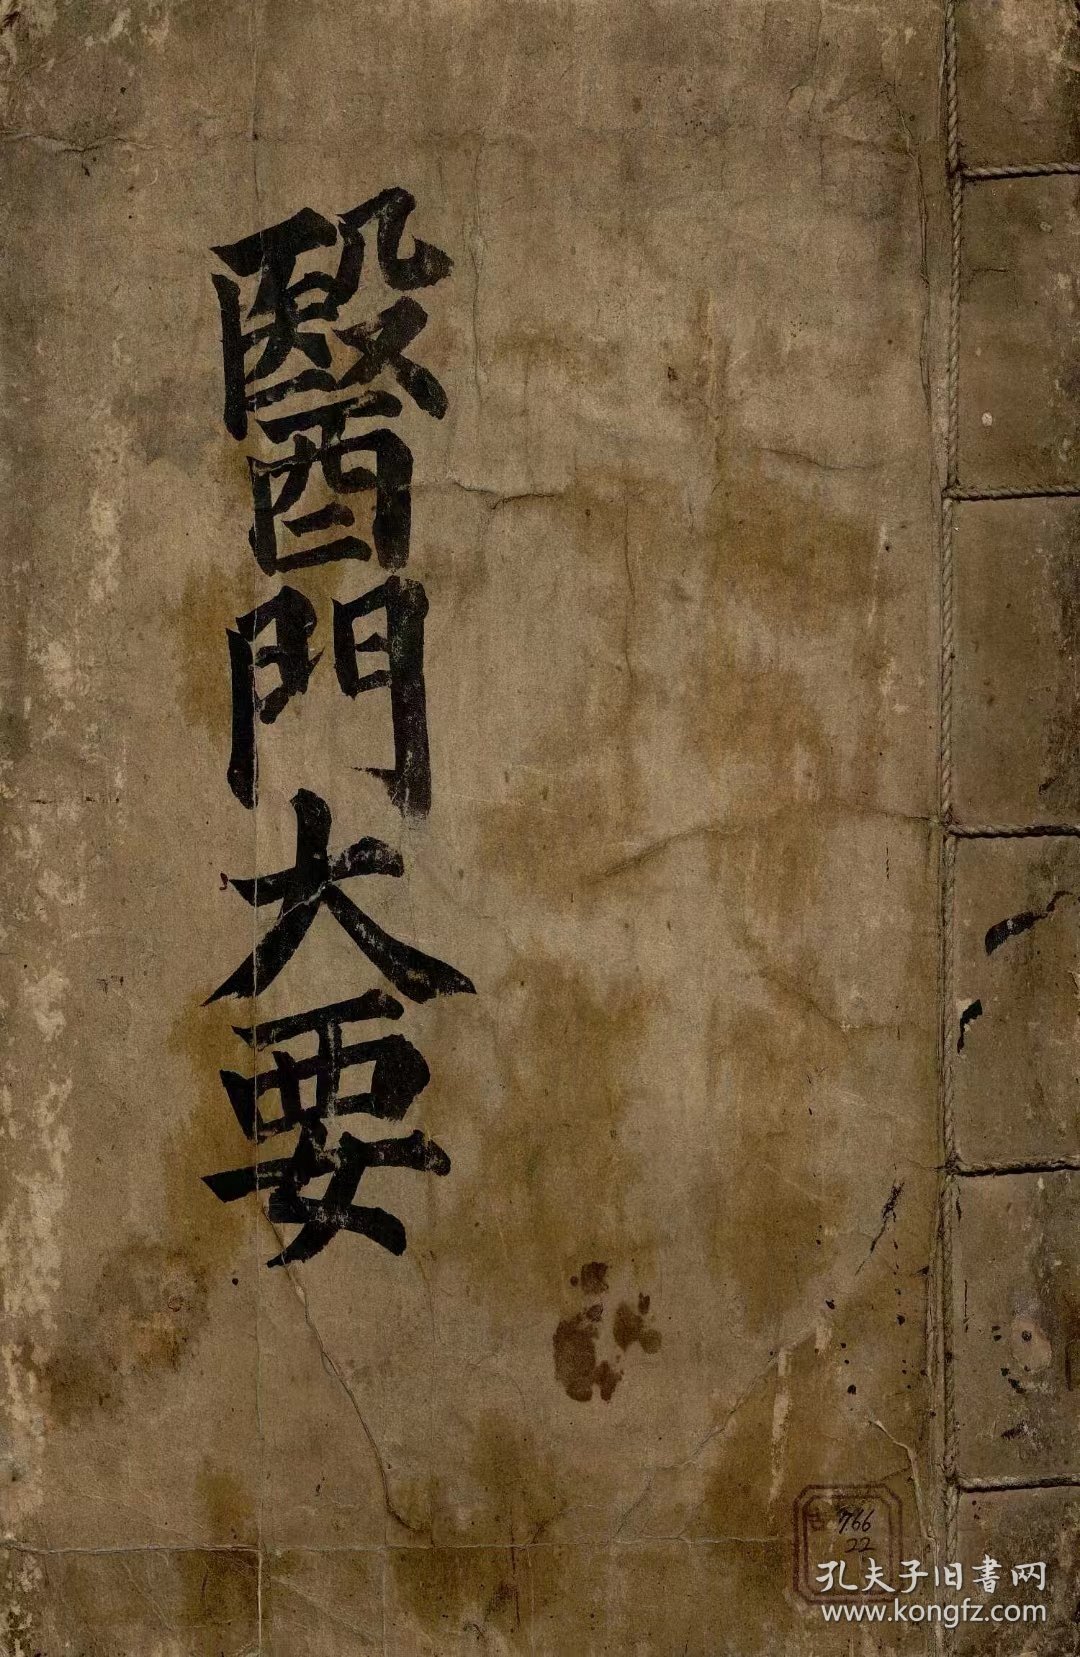 醫門大要
古 766
22
孔夫子旧書网
www.kongfz.com